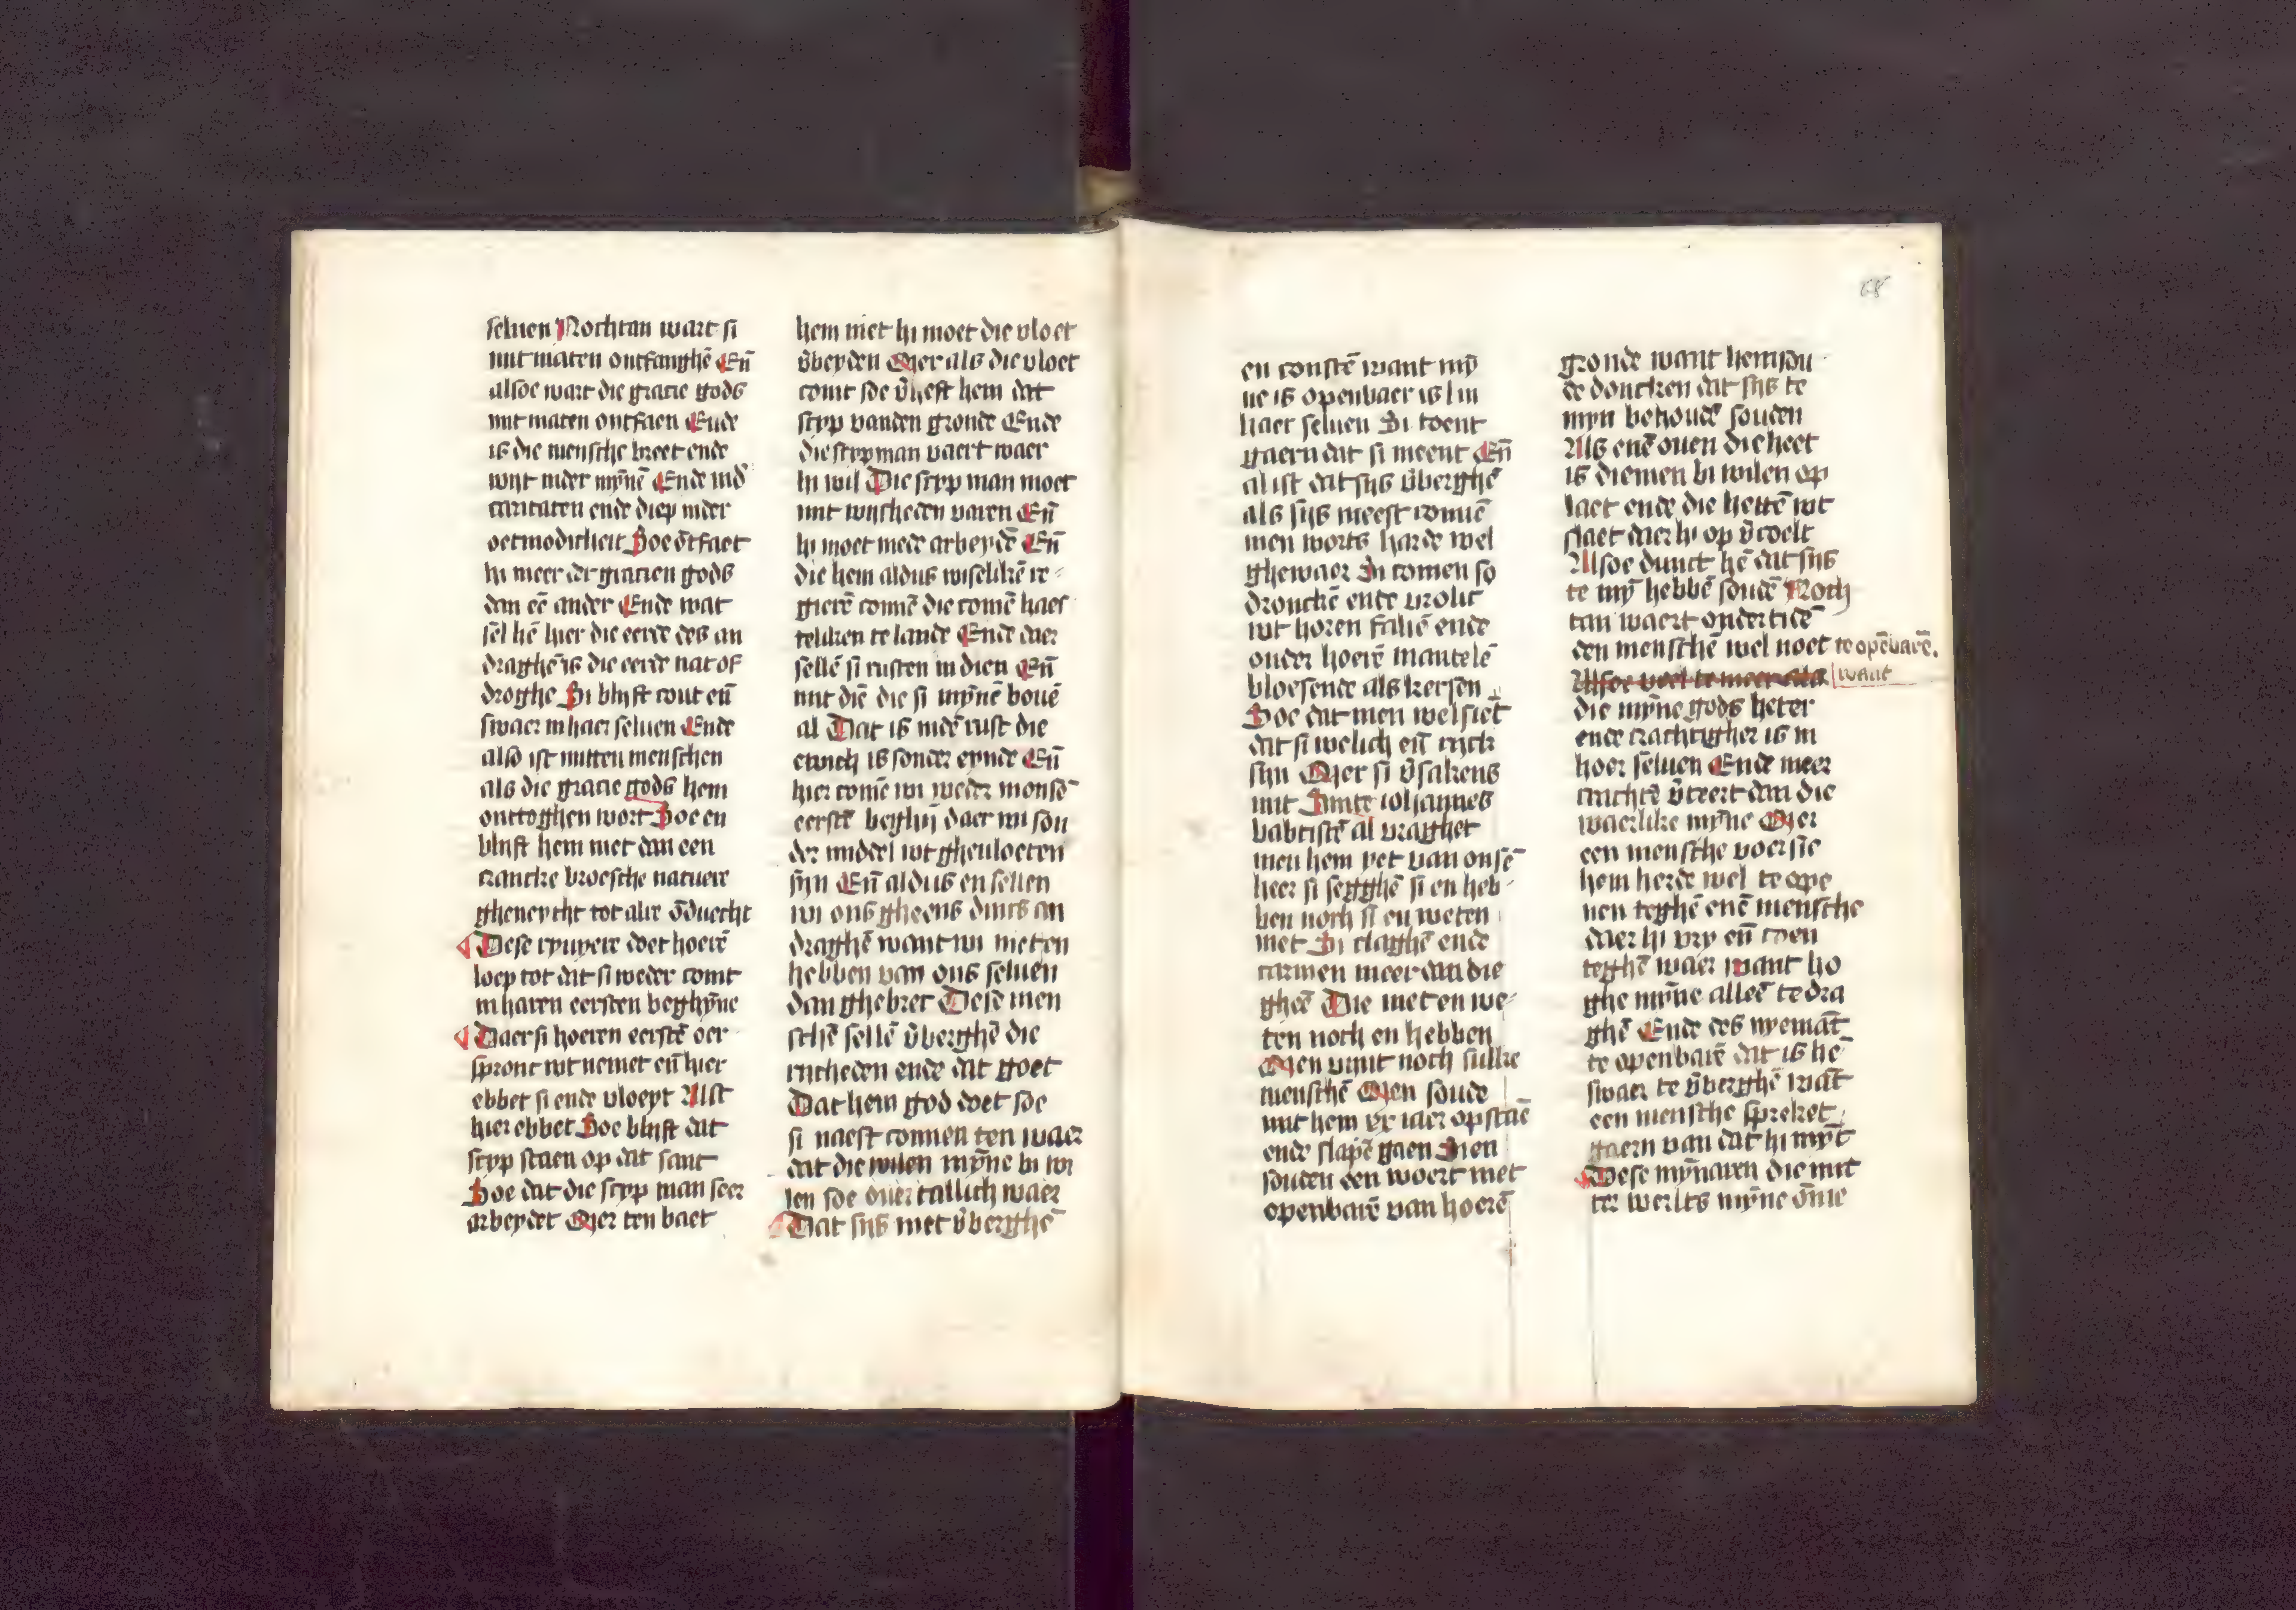 seluen Nochtan wart si
mit maten ontfanghē Eñ
alsoe wart die gracie gods
mit maten ontfaen Ende
is die mensche breet ende
wijt inder mȳnē Ende ind̄
caritaten ende diep inder
oetmodicheit Soe ōtfaet
hi meer der gracien gods
dan eē ander Ende wat
sel hē hier die eerde des an
draghē is die eerde nat of
droghe Si blijft cout eñ
swaer in haer seluen Ende
also ist mitten menschen
als die gracie gods hem
onttoghen wort Soe en
blijft hem niet dan een
crancke broesche natuere
gheneycht tot alre ōduecht
Dese ryuyere doet hoerē
loep tot dat si weder comt
in haren eersten beghȳne
Daer si hoeren eerstē oer
spronc wt nemet eñ hier
ebbet si ende vloeyt Alst
hier ebbet Soe blijft dat
scyp staen op dat sant
Soe dat die scyp man seer
arbeydet Mer ten baet
hem niet hi moet die vloet
v̄beyden Mer als die vloet
comt soe v̄heft hem dat
scyp vanden gronde Ende
die scypman vaert waer
hi wil Die scyp man moet
mit wijsheden varen Eñ
hi moet mede arbeydē Eñ
die hem aldus wiselikē re
gierē connē die comē haes
teliken te lande Ende daer
sellē si rusten in dien Eñ
mit diē die si mȳnē bouē
al Dat is indē rust die
ewich is sonder eynde Eñ
hier comē wi weder in onsē
eerstē beghijn daer wi son
der middel wt gheuloeten
sijn Eñ aldus en sellen
wi ons gheens dincs an
draghē want wi niet en
hebben van ons seluen
dan ghebrec Dese men
schē sellē v̄berghē die
rycheden ende dat goet
Dat hem god doet soe
si naest connen ten waer
dat die wilen mȳne bi wi
len soe ouertallich waer
Dat sijs niet v̄berghē
68
en constē want mȳ
ne is openbaer is l in
haer seluen Si toent
gaern dat si meent Eñ
al ist dat sijs v̄berghē
als sijs meest connē
men worts harde wel
ghewaer Si comen so
dronckē ende vrolic
wt horen faliē ende
onder hoerē mantelē
bloesende als kersen
Soe dat men wel siet
dat si welich eñ ryck
sijn Mer si v̄sakens
mit Sinte iohannes
babtistē al vraghet
men hem yet van onsē
heer si segghē si en heb
ben noch si en weten
niet Si claghē ende
carmen meer dan die
gheē Die niet en we
ten noch en hebben
Men vint noch sulke
menschē Men soude
mit hem xx iaer opstaē
ende slapē gaen Sien
souden een woert niet
openbarē van hoerē
gronde want hem sou
de doncken dat sijs te
myn behoudē souden
Als enē ouen die heet
is diemen bi wilen op
laet ende die hettē wt
slaet daer hi op v̄coelt
Alsoe dunct hē dat sijs
te mȳ hebbē soudē Noch
tan waert ondertidē
den menschē wel noet te opēbarē.
want
die mȳne gods heter
ende crachtigher is in
hoer seluen Ende meer
crachtē v̄teert dan die
waerlike mȳne Mer
een mensche voersie
hem herde wel te ope
nen teghē enē mensche
daer hi vry eñ coen
teghē waer want ho
ghe mȳne alleē te dra
ghē Ende des nyemāt
te openbarē dat is hē
swaer te v̄berghē wāt
een mensche spreket
gaern van dat hi mȳt
Dese mȳnaren die mit
ter werlts mȳne ōme